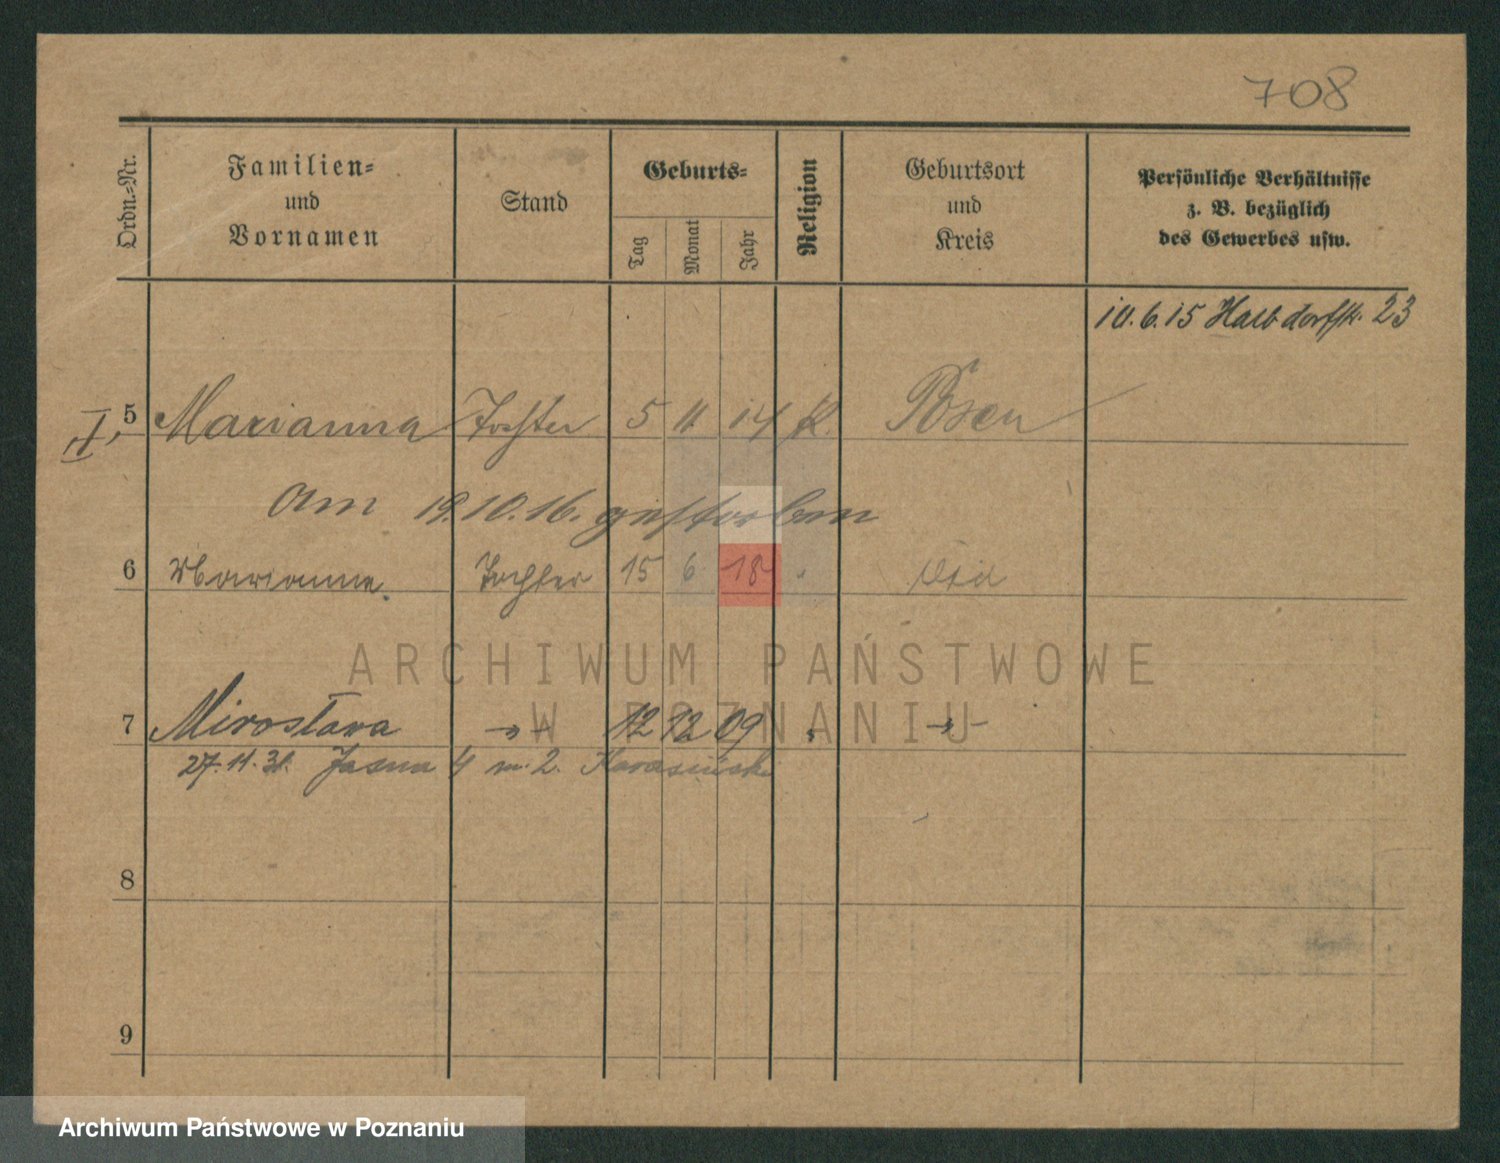 708
Ordn.-Nr.
Familien-
und
Vornamen
Stand
Geburts-
Tag
Monat
Jahr
Religion
Geburtsort
und
Kreis
Persönliche Verhältnisse
z. B. bezüglich
des Gewerbes usw.
10.6.15 Halbdorfstr. 23
5 Marianna Tochter 5 11 14 K. Posen
am 19.10.16. gestorben
6 Marianne Tochter 15 6 18
7 Mirosława 12 12 09
27.11.31. Jasna 4 m. 2.
8
9
ARCHIWUM PAŃSTWOWE
W POZNANIU
Archiwum Państwowe w Poznaniu